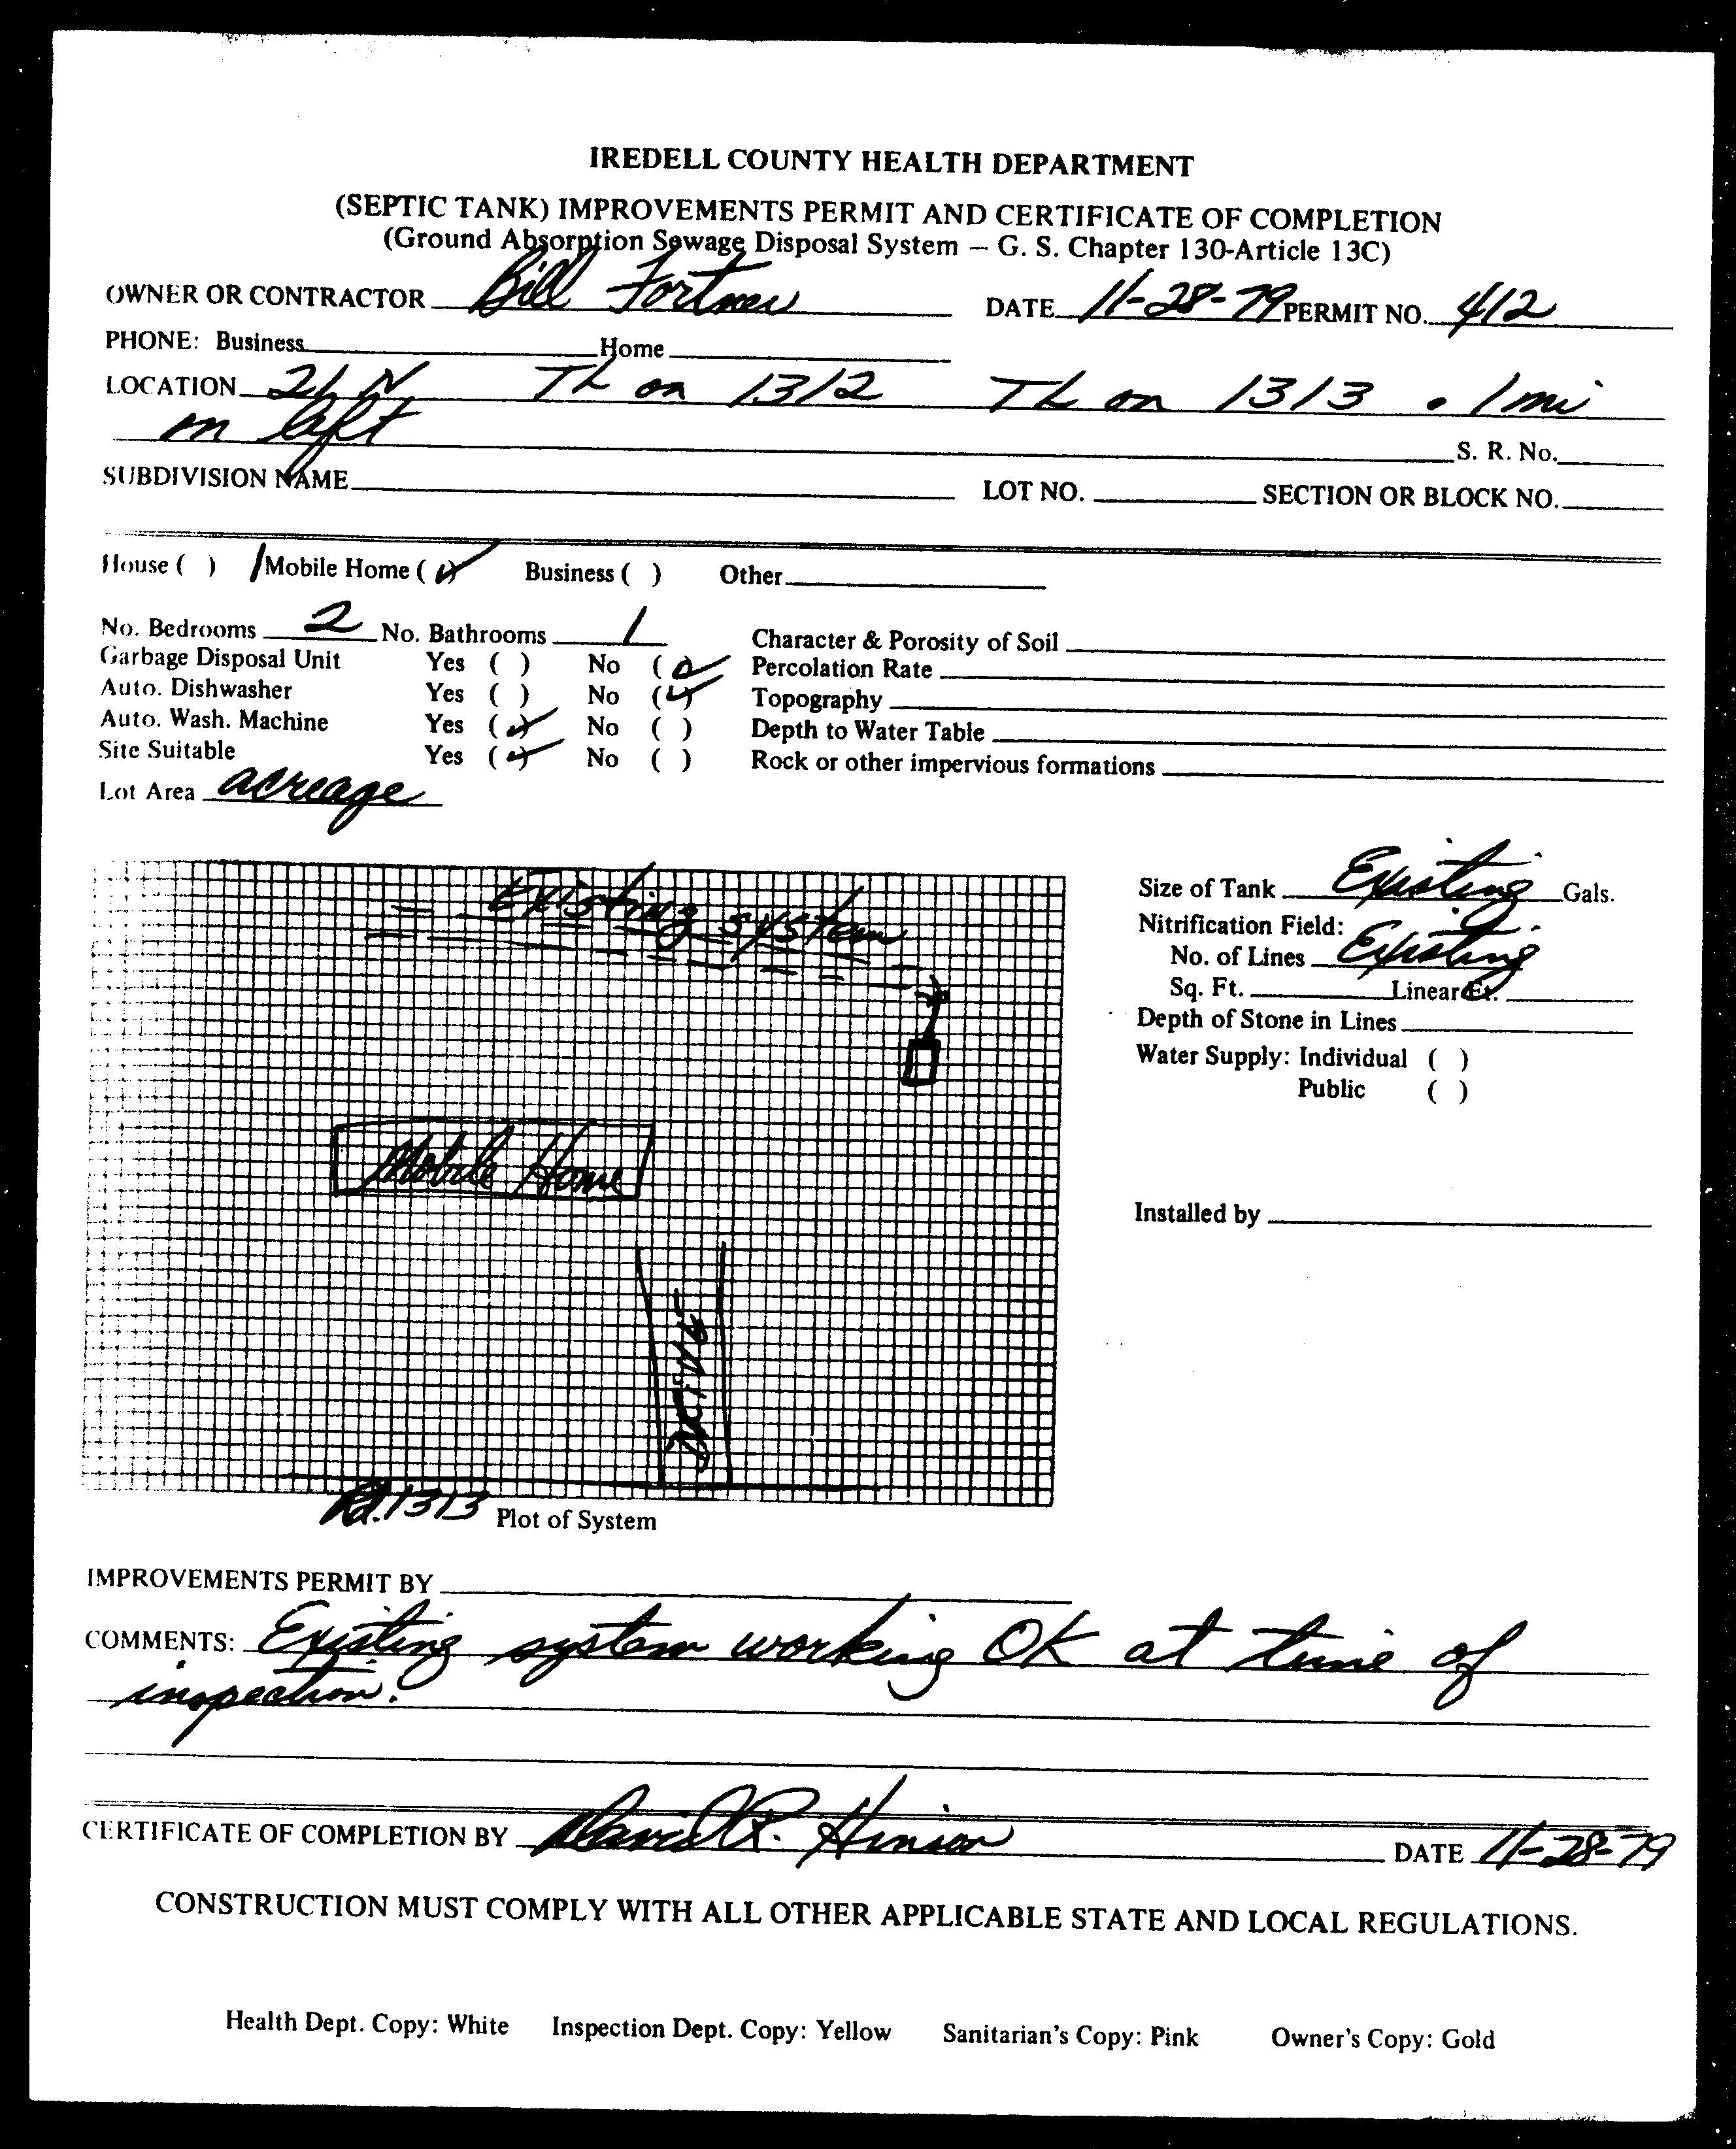 IREDELL COUNTY HEALTH DEPARTMENT
(SEPTIC TANK) IMPROVEMENTS PERMIT AND CERTIFICATE OF COMPLETION
(Ground Absorption Sewage Disposal System — G. S. Chapter 130-Article 13C)
OWNER OR CONTRACTOR Bill DATE 11-28-79 PERMIT NO. 412
PHONE: Business Home
LOCATION 21 N TL on 1312 TL on 1313 . 1 mi
on left S. R. No.
SUBDIVISION NAME LOT NO. SECTION OR BLOCK NO.
House ( ) Mobile Home (✓) Business ( ) Other
No. Bedrooms 2 No. Bathrooms 1 Character & Porosity of Soil
Garbage Disposal Unit Yes ( ) No (✓) Percolation Rate
Auto. Dishwasher Yes ( ) No (✓) Topography
Auto. Wash. Machine Yes (✓) No ( ) Depth to Water Table
Site Suitable Yes (✓) No ( ) Rock or other impervious formations
Lot Area acreage
Existing system
Mobile Home
Drive
Rd. 1313 Plot of System
Size of Tank Existing Gals.
Nitrification Field:
No. of Lines Existing
Sq. Ft. Linear Ft.
Depth of Stone in Lines
Water Supply: Individual ( )
Public ( )
Installed by
IMPROVEMENTS PERMIT BY
COMMENTS: Existing system working OK at time of
inspection.
CERTIFICATE OF COMPLETION BY David R. Hinson DATE 11-28-79
CONSTRUCTION MUST COMPLY WITH ALL OTHER APPLICABLE STATE AND LOCAL REGULATIONS.
Health Dept. Copy: White Inspection Dept. Copy: Yellow Sanitarian's Copy: Pink Owner's Copy: Gold